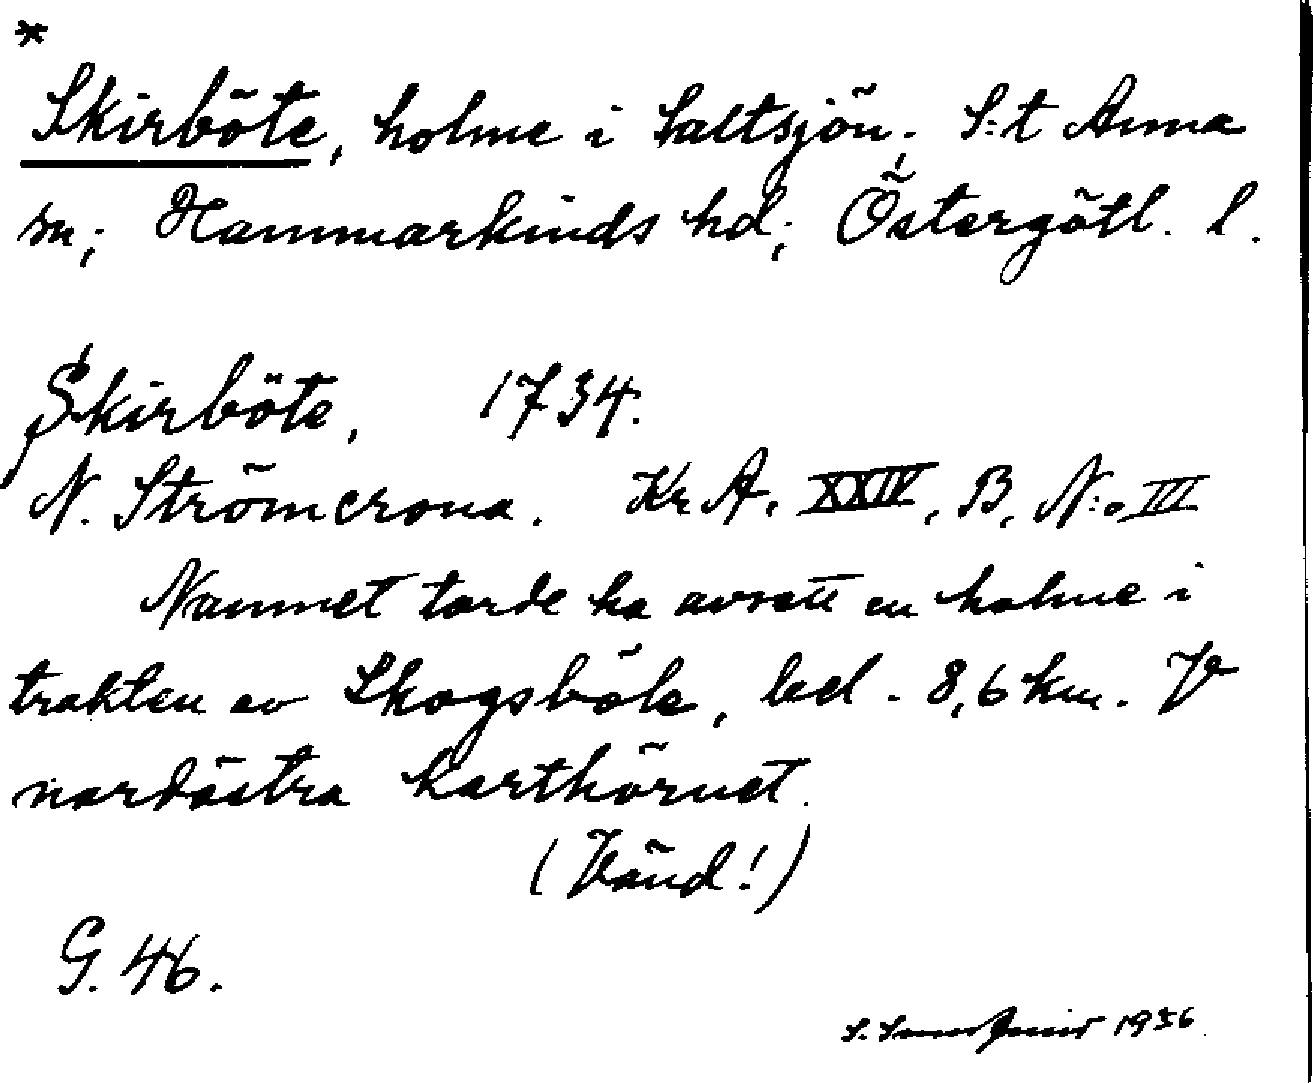 *
Skirböte, holme i Saltsjön. S:t Anna
sn; Hammarkinds hd; Östergötl. l.
Skirböte, 1734.
N. Strömcrona. Kr A. XXIV, B, N:o III
Namnet torde ha avsett en holme i
trakten av Skogsböle, bel. 8,6 km. V
nordöstra karthörnet.
(Vänd!)
G. 46.
S. 1936